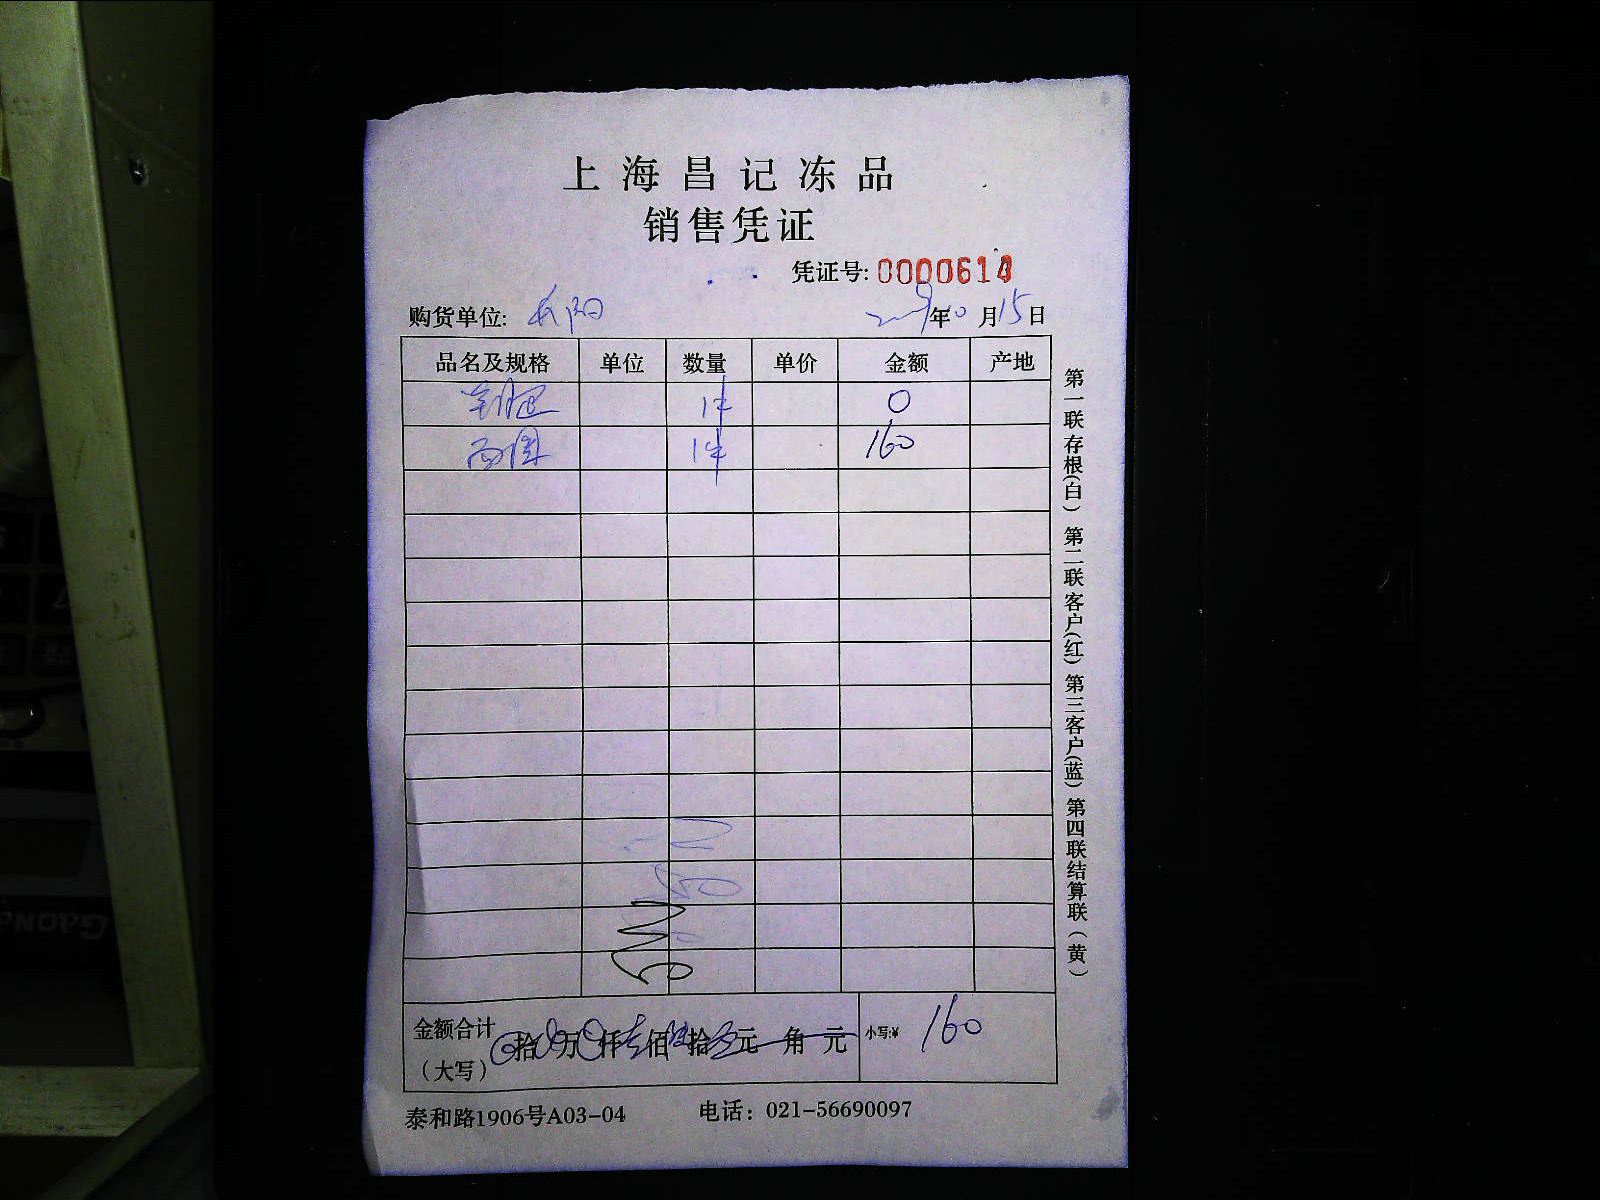 上海昌记冻品
销售凭证
凭证号: 0000613
购货单位: 年10月15日
品名及规格 单位 数量 单价 金额 产地
1件 0
1件 160
金额合计（大写） 拾 万 仟 佰 拾 元 角 元 小写:¥ 160
泰和路1906号A03-04 电话：021-56690097
第一联存根(白) 第二联客户(红) 第三客户(蓝) 第四联结算联(黄)